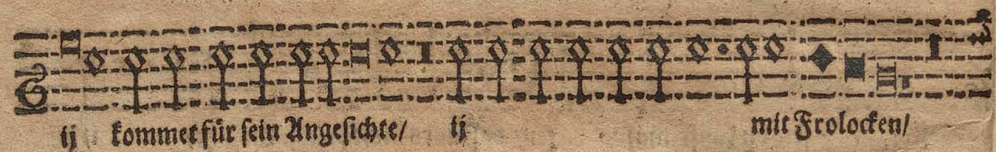 ij kommet für sein Angesichte/ ij mit Frolocken/